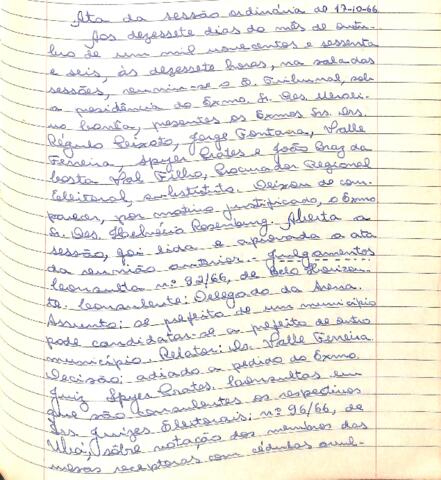 Ata da sessão ordinária de 17-10-66
Aos dezessete dias do mês de outu-
bro de um mil novecentos e sessenta
e seis, às dezessete horas, na sala das
sessões, reuniu-se o E. Tribunal, sob
a presidência do Exmo. Sr. Des.
presentes os Exmos Srs. Drs.
Régulo Peixoto, Jorge Fontana, Valle
Ferreira, Spyer Prates e João Braz da
Costa Val Filho, Procurador Regional
Eleitoral, substituto. Deixou de com-
parecer, por motivo justificado, o Exmo
Sr. Des. Helvécio Rosenburg. Aberta a
sessão, foi lida e aprovada a ata
da reunião anterior. Julgamentos
Consulta nº 92/66, de Belo Horizon-
te. Consulente: Delegado da Arena.
Assunto: se prefeito de um município
pode candidatar-se a prefeito de outro
município. Relator: Dr. Valle Ferreira.
Decisão: adiado a pedido do Exmo.
Juiz Spyer Prates. Consultas em
que são consulentes os respectivos
Srs. Juízes Eleitorais: nº 96/66, de
Ubá, sôbre votação dos membros das
mesas receptoras com cédulas avul-